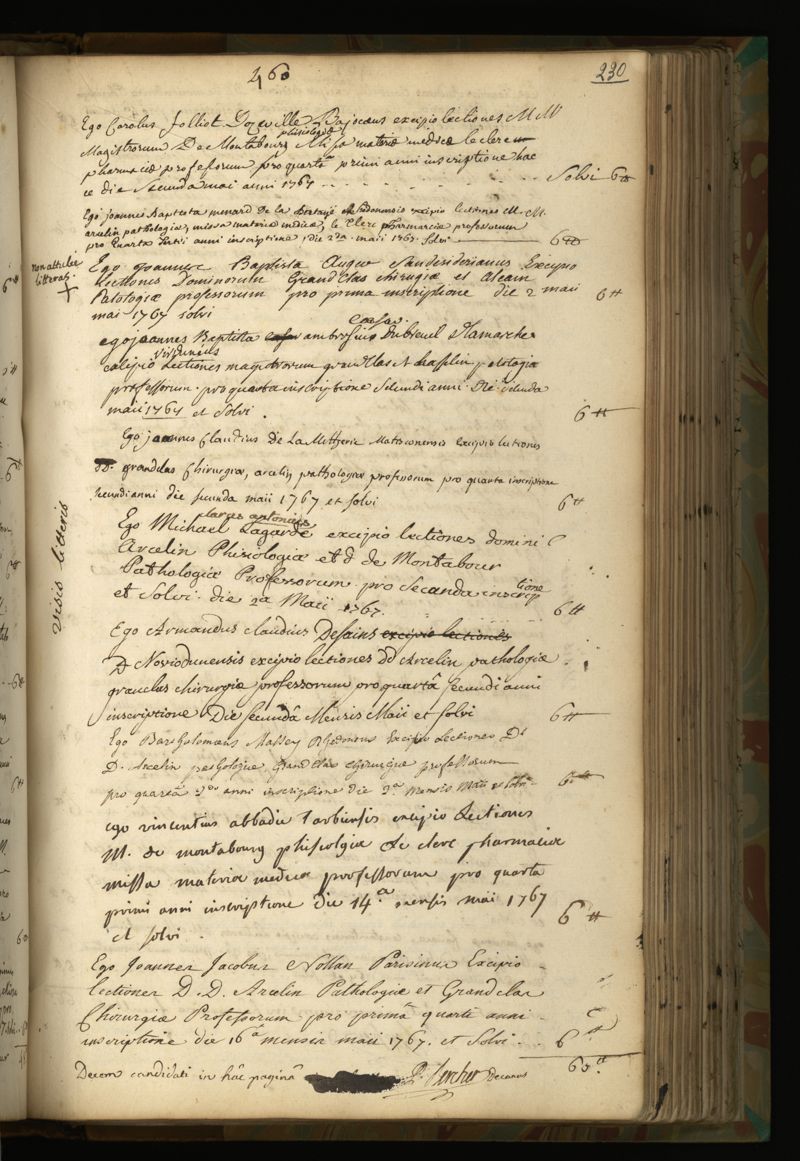 460
230
Ego Carolus Jolliot Dozeville Bajocæus excipio lectiones M M
phisiologiæ
Magistrorum De Montabourg Missa materiæ medicæ le clerc
pharmaciæ professorum pro quartâ primi anni inscriptione hac
ce die secunda maii anni 1767 Solvi 6 ₶
Ego joannes Baptista menard De la excipio lectiones M. M.
arcelin pathologiæ, missa materiæ medicæ, le Clerc Pharmaciæ professorum
pro quarta anni inscriptione, die 2da. maii 1767. Solvi 6 ₶
non attulit
litteras.
Ego joannes Baptista Augier Sandesiderianus Excipio
Lectiones Dominorum Grandclas chirugiæ et Alcain
Patologiæ professorum pro prima inscriptione die 2 maii
mai 1767 solvi 6 ₶
ego joannes Baptista ambrosius Dubreuil
virdunens
Lectiones magistrorum grandclas et patologia
professorum. pro quarta inscriptione secundi anni. Die secunda
maii 1767 et Solvi. 6 ₶
Ego joannes Claudius De La Metherie Matisconensis Excipio lectiones
DD. grandclas Chirurgiæ, arcelin pathologiæ professorum pro quarta inscriptione
secundi anni die secunda maii 1767 et solvi 6 ₶
visis litteris
antonius
Ego Michael Lagarde excipio lectiones domini
Arcelin Phisiologiæ et d de Montabour
Pathologiæ Professorum pro Secanda inscrip
tione
et Solvi die 2a Maii 1767. 6 ₶
Ego Armandus claudius Desains excipio lectiones
D Noviodunensis excipio lectiones dd Arcelin pathologiæ
granclas chirurgiæ professorum pro quartâ secundi anni
inscriptione Die secundâ Mensis Maii et solvi 6 ₶
Ego Bartholomæus Massey Rhedonæus Excipio Lectiones D.
D. Arcelin Grandclas chirurgiæ professorum
pro quartâ 2di anni inscriptione die 2a mensis Maii et solvi 6 ₶
ego vincentius abbadie tarbiensis excipio Lectiones
M. de montabourg phisiolgiæ Le clerc pharmaciæ
missa materiæ medicæ professorum pro quarta
primi anni inscriptione die 14.a mensis maii 1767
et solvi. 6 ₶
Ego Joannes Jacobus Nollan Parisinus Excipio
lectiones D. D. Arcelin Pathologiæ et Grandclas
Chirurgiæ Professorum pro primâ quarti anni
inscriptione die 16.a mensis maii 1767. et Solvi. 6 ₶
60 ₶
Decem candidati in hâc paginâ P. Bercher Decanus